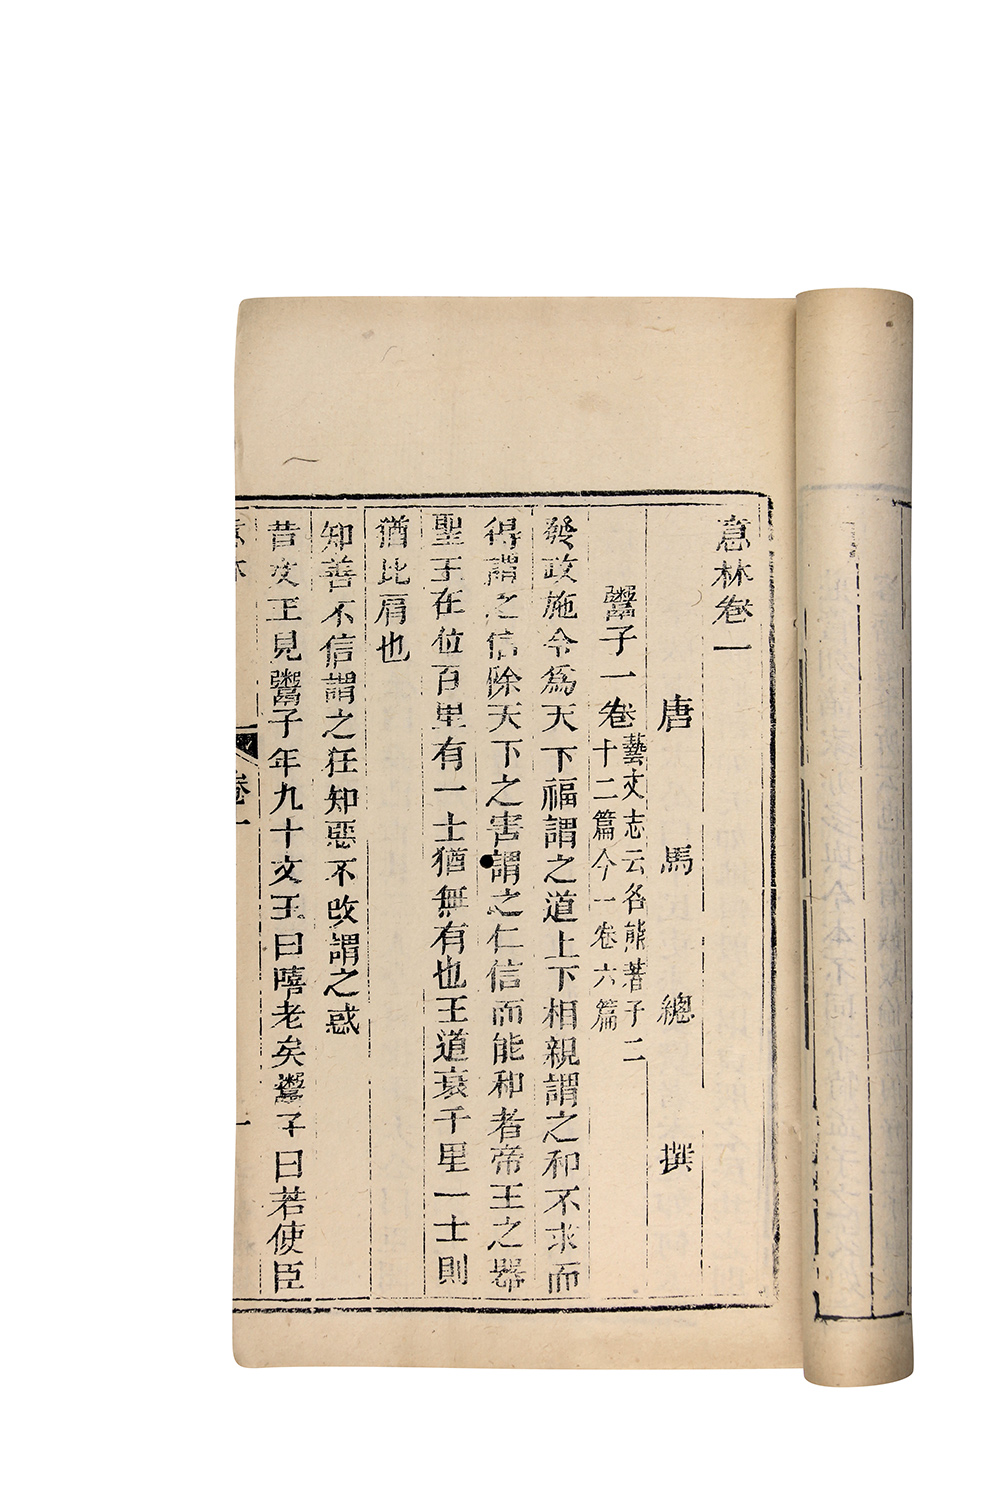 意林卷一
唐馬總撰
鬻子一卷藝文志云名熊著子二
十二篇今一卷六篇
發政施令為天下福謂之道上下相親謂之和不求而
得謂之信除天下之害謂之仁信而能和者帝王之器
聖王在位百里有一士猶無有也王道衰千里一士則
猶比肩也
知善不信謂之狂知惡不改謂之惑
昔文王見鬻子年九十文王曰嘻老矣鬻子曰若使臣
意林
卷一
一